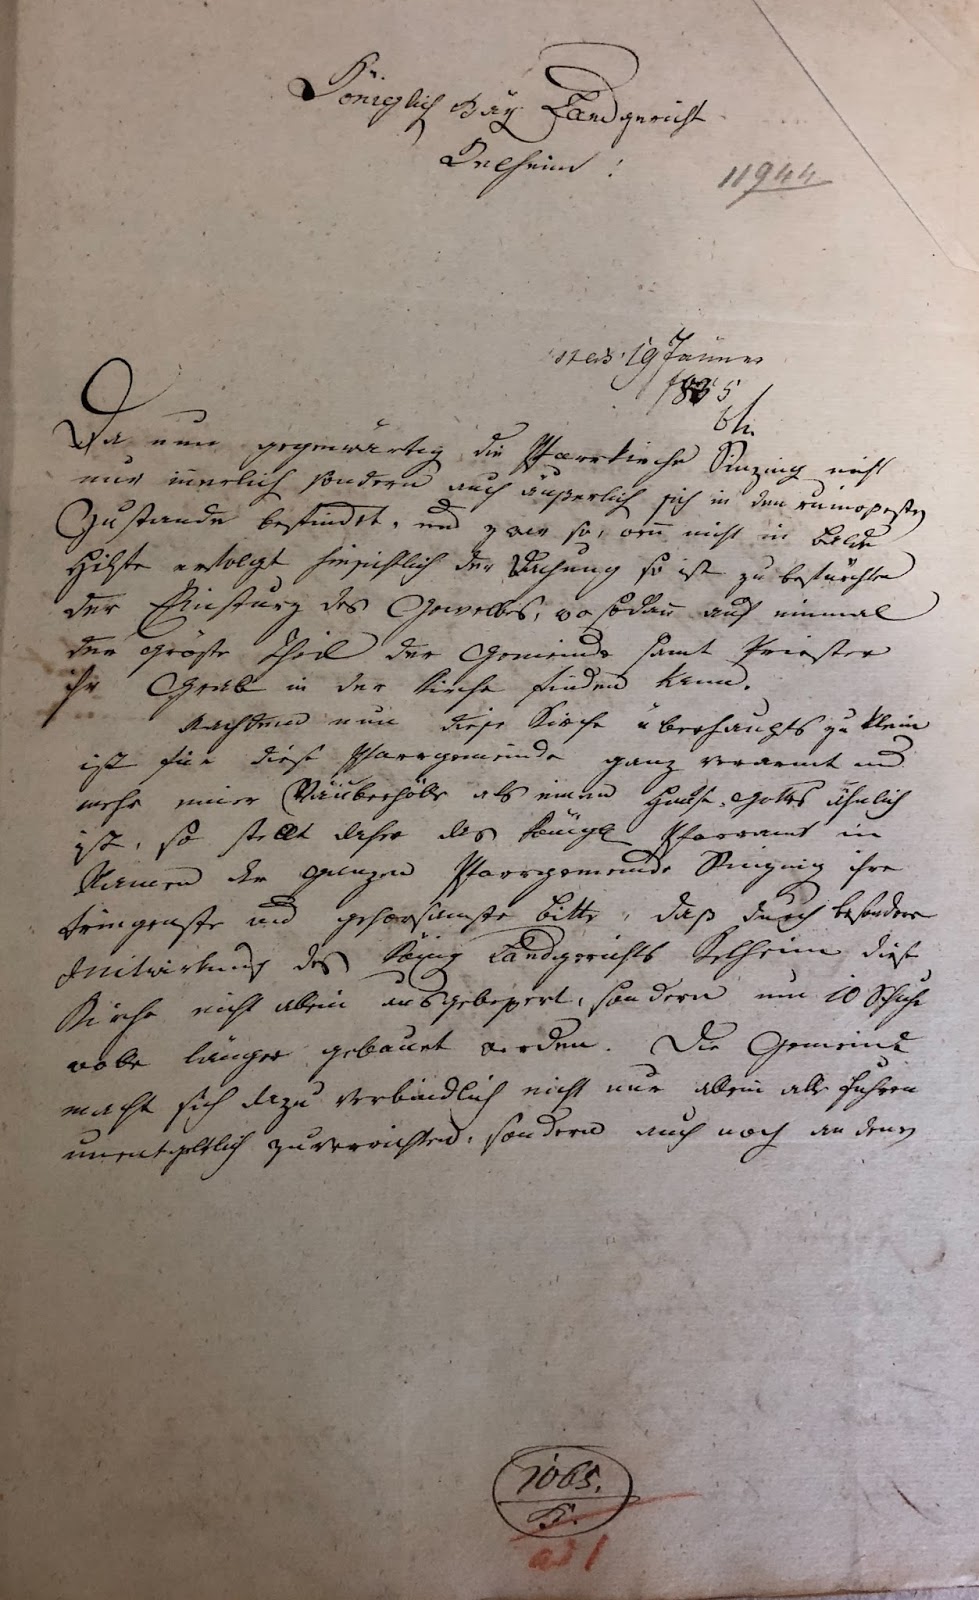 Königlich Bay. Landgericht
Kelheim!
11944
19 Jänner
1835
Da nun gegenwärtig die Pfarrkirche Sinzing nicht
nur innerlich sondern auch äußerlich sich in den ruinosesten
Zustande befindet, und zwar so, wenn nicht in Bälde
Hilfe erfolgt hinsichtlich der Dachung so ist zu befürchten
der Einsturz des Gewelbes, wo sodann auf einmal
der gröste Theil der Gemeinde samt Priester
ihr Grab in der Kirche finden kann.
Nachdem nun diese Kirche überhaupts zu klein
ist für diese Pfarrgemeinde ganz verarmt und
mehr einer Räuberhöle als einem Hause Gottes ähnlich
ist, so stellt daher das Königl Pfarramt in
Namen der ganzen Pfarrgemeinde Sinzing ihre
dringenste und gehorsamste Bitte, daß durch besondere
Mitwirkung des König Landgerichts Kelheim diese
Kirche nicht allein ausgebessert, sondern um 10 Schuhe
länger gebauet werden. Die Gemeinde
macht sich dazu verbindlich nicht nur allein alle Fuhren
unentgeltlich zu verrichten, sondern auch noch an denen
1065.
K.
ad 1